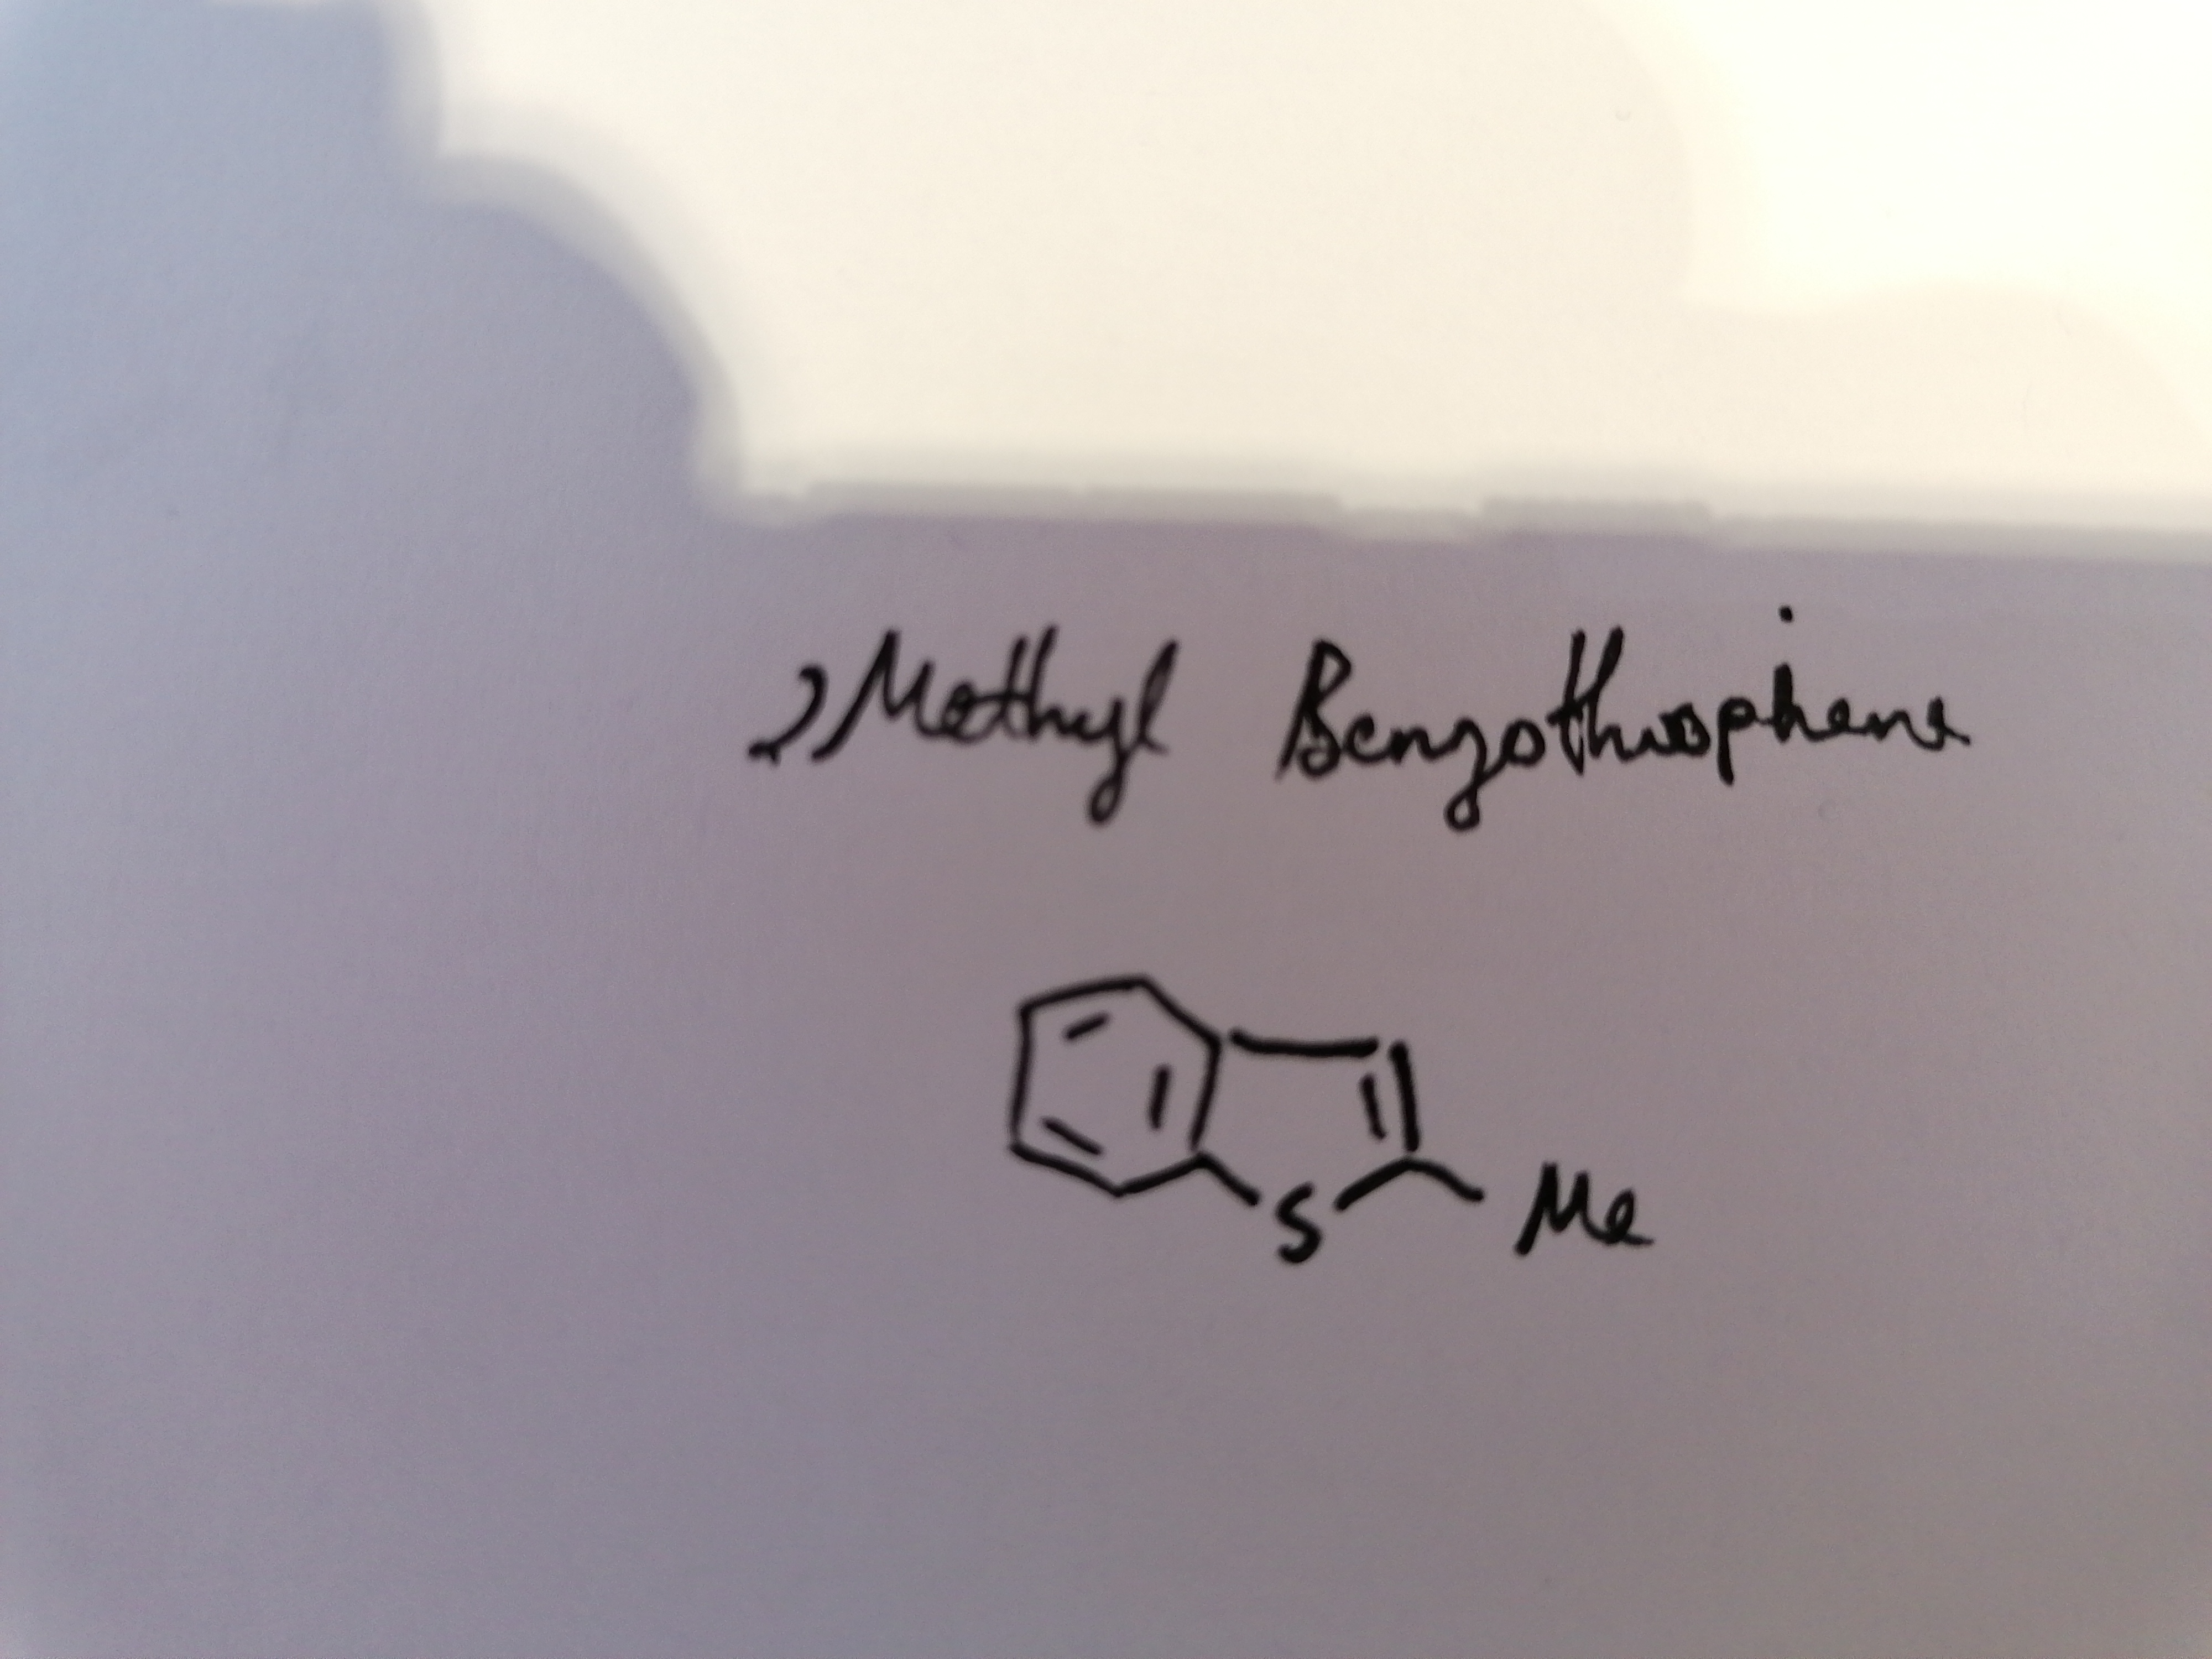 2 Methyl Benzothiophene
S
Me